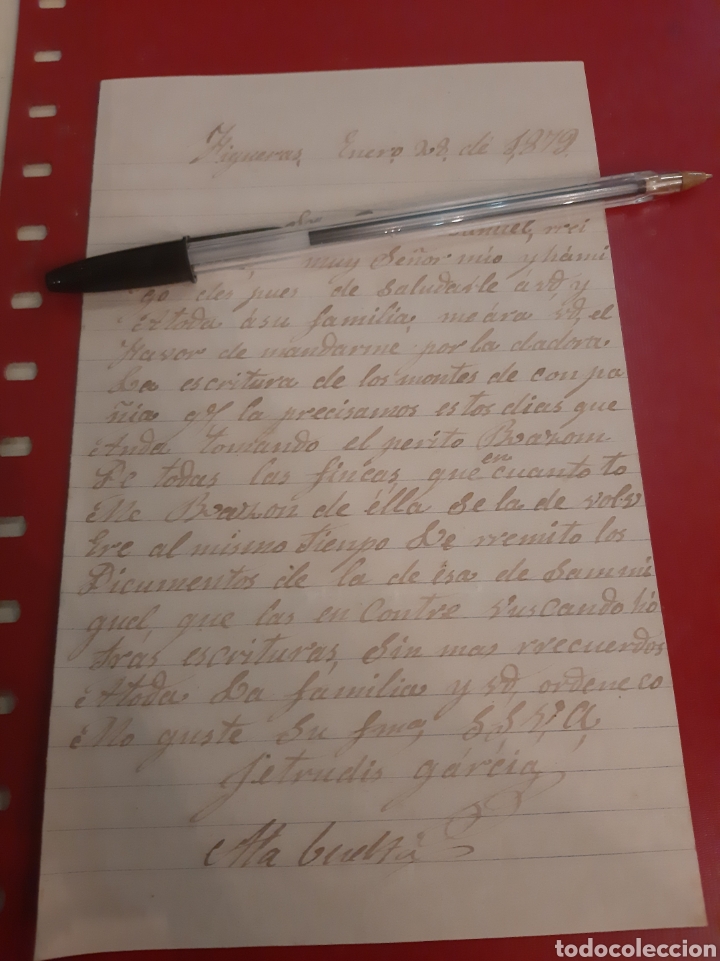 Figueras Enero 28. de 1,879.
muy Señor mio y hami
go des pues de saludarle á vd y
Atoda ásu familia, meára vd, el
Favor de mandarme por la dadora
La escritura de los montes de con pa
ñia qe la precisamos estos dias que
Anda tomando el perito Razom
De todas las fincas que en cuanto to
Me Razon de élla se la de volv
Ere al mismo tienpo Le rremito los
Dicumentos de la de esa de Sammi
guel que las en contre vuscando ho
tras escrituras, Sin mas rrecuerdos
Atoda La familia y vd ordene co
Mo guste Su
Jetrudis garcia
Ala buelta
todocoleccion